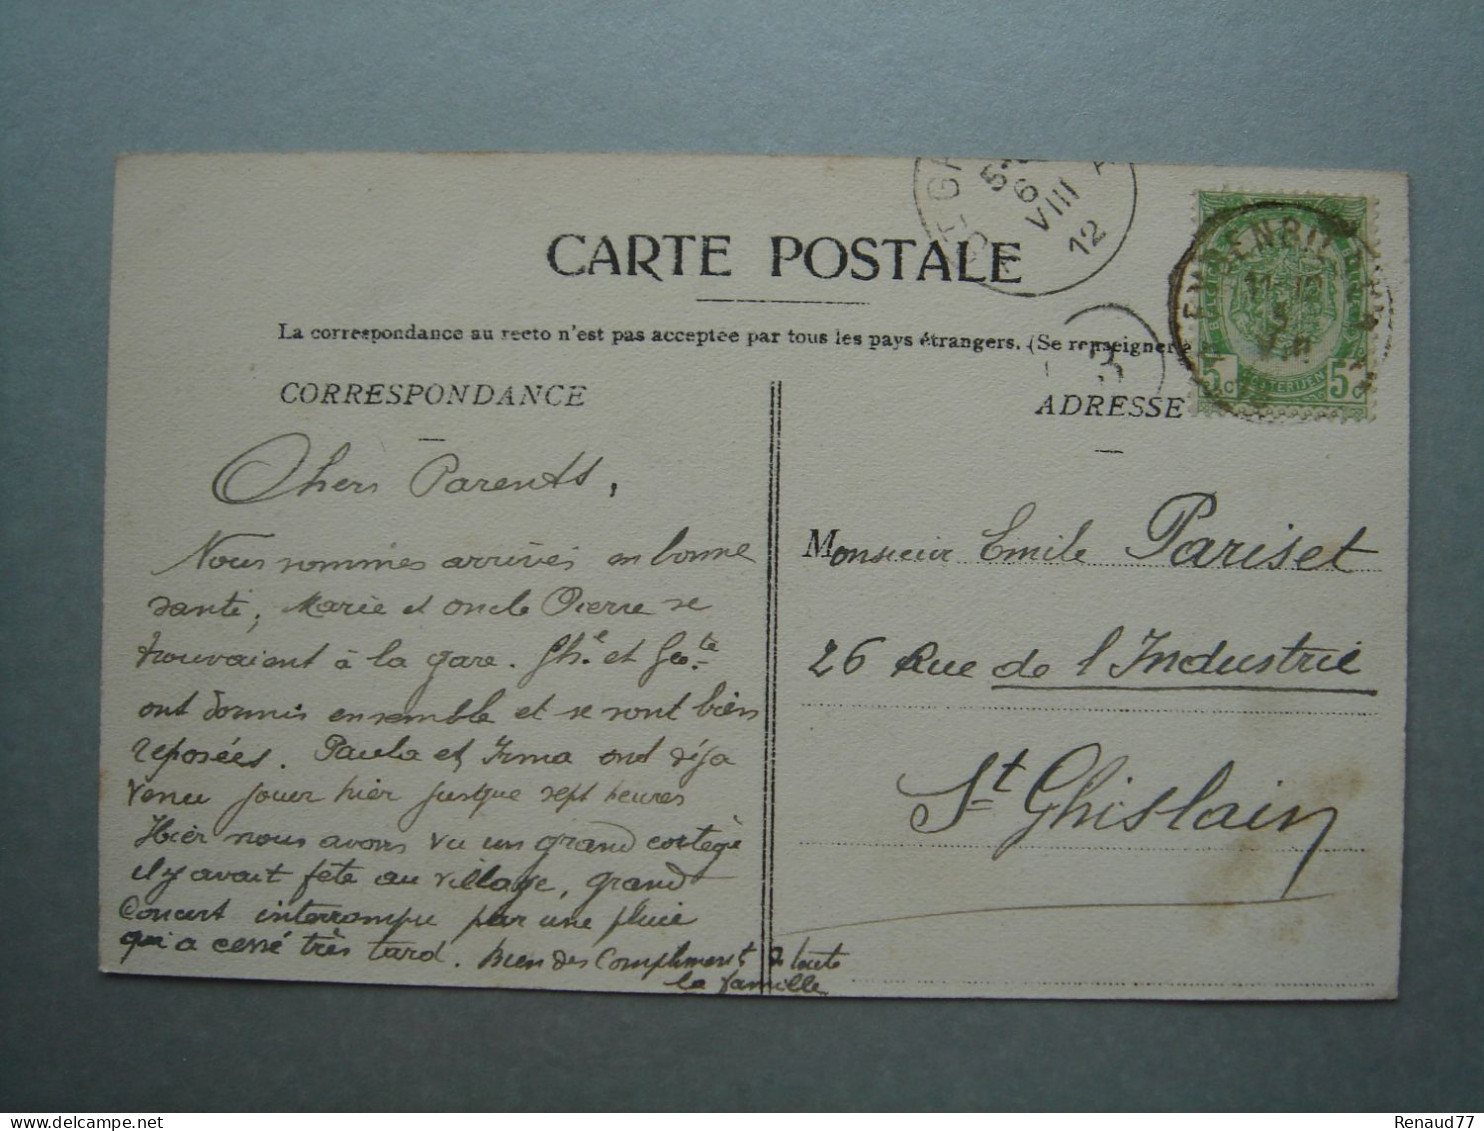 CARTE POSTALE
La correspondance au recto n'est pas acceptée par tous les pays étrangers. (Se renseigner
CORRESPONDANCE
ADRESSE
Chers Parents,
Nous sommes arrivés en bonne
santé, Marie et oncle Pierre se
trouvaient à la gare. Gh.e et Geo.te
ont dormis ensemble et se sont bien
reposées. Paula et Irma ont déja
venu jouer hier jusque sept heures
Hier nous avons vu un grand cortège
il y avait fête au village, grand
Concert interrompu par une pluie
qui a cessé très tard. Bien des Compliments de toute
la famille
Monsieur Emile Pariset
26 Rue de l'Industrie
St Ghislain
6
VIII
12
3
VIII
5 c 5 c
POSTERIJEN
Renaud77